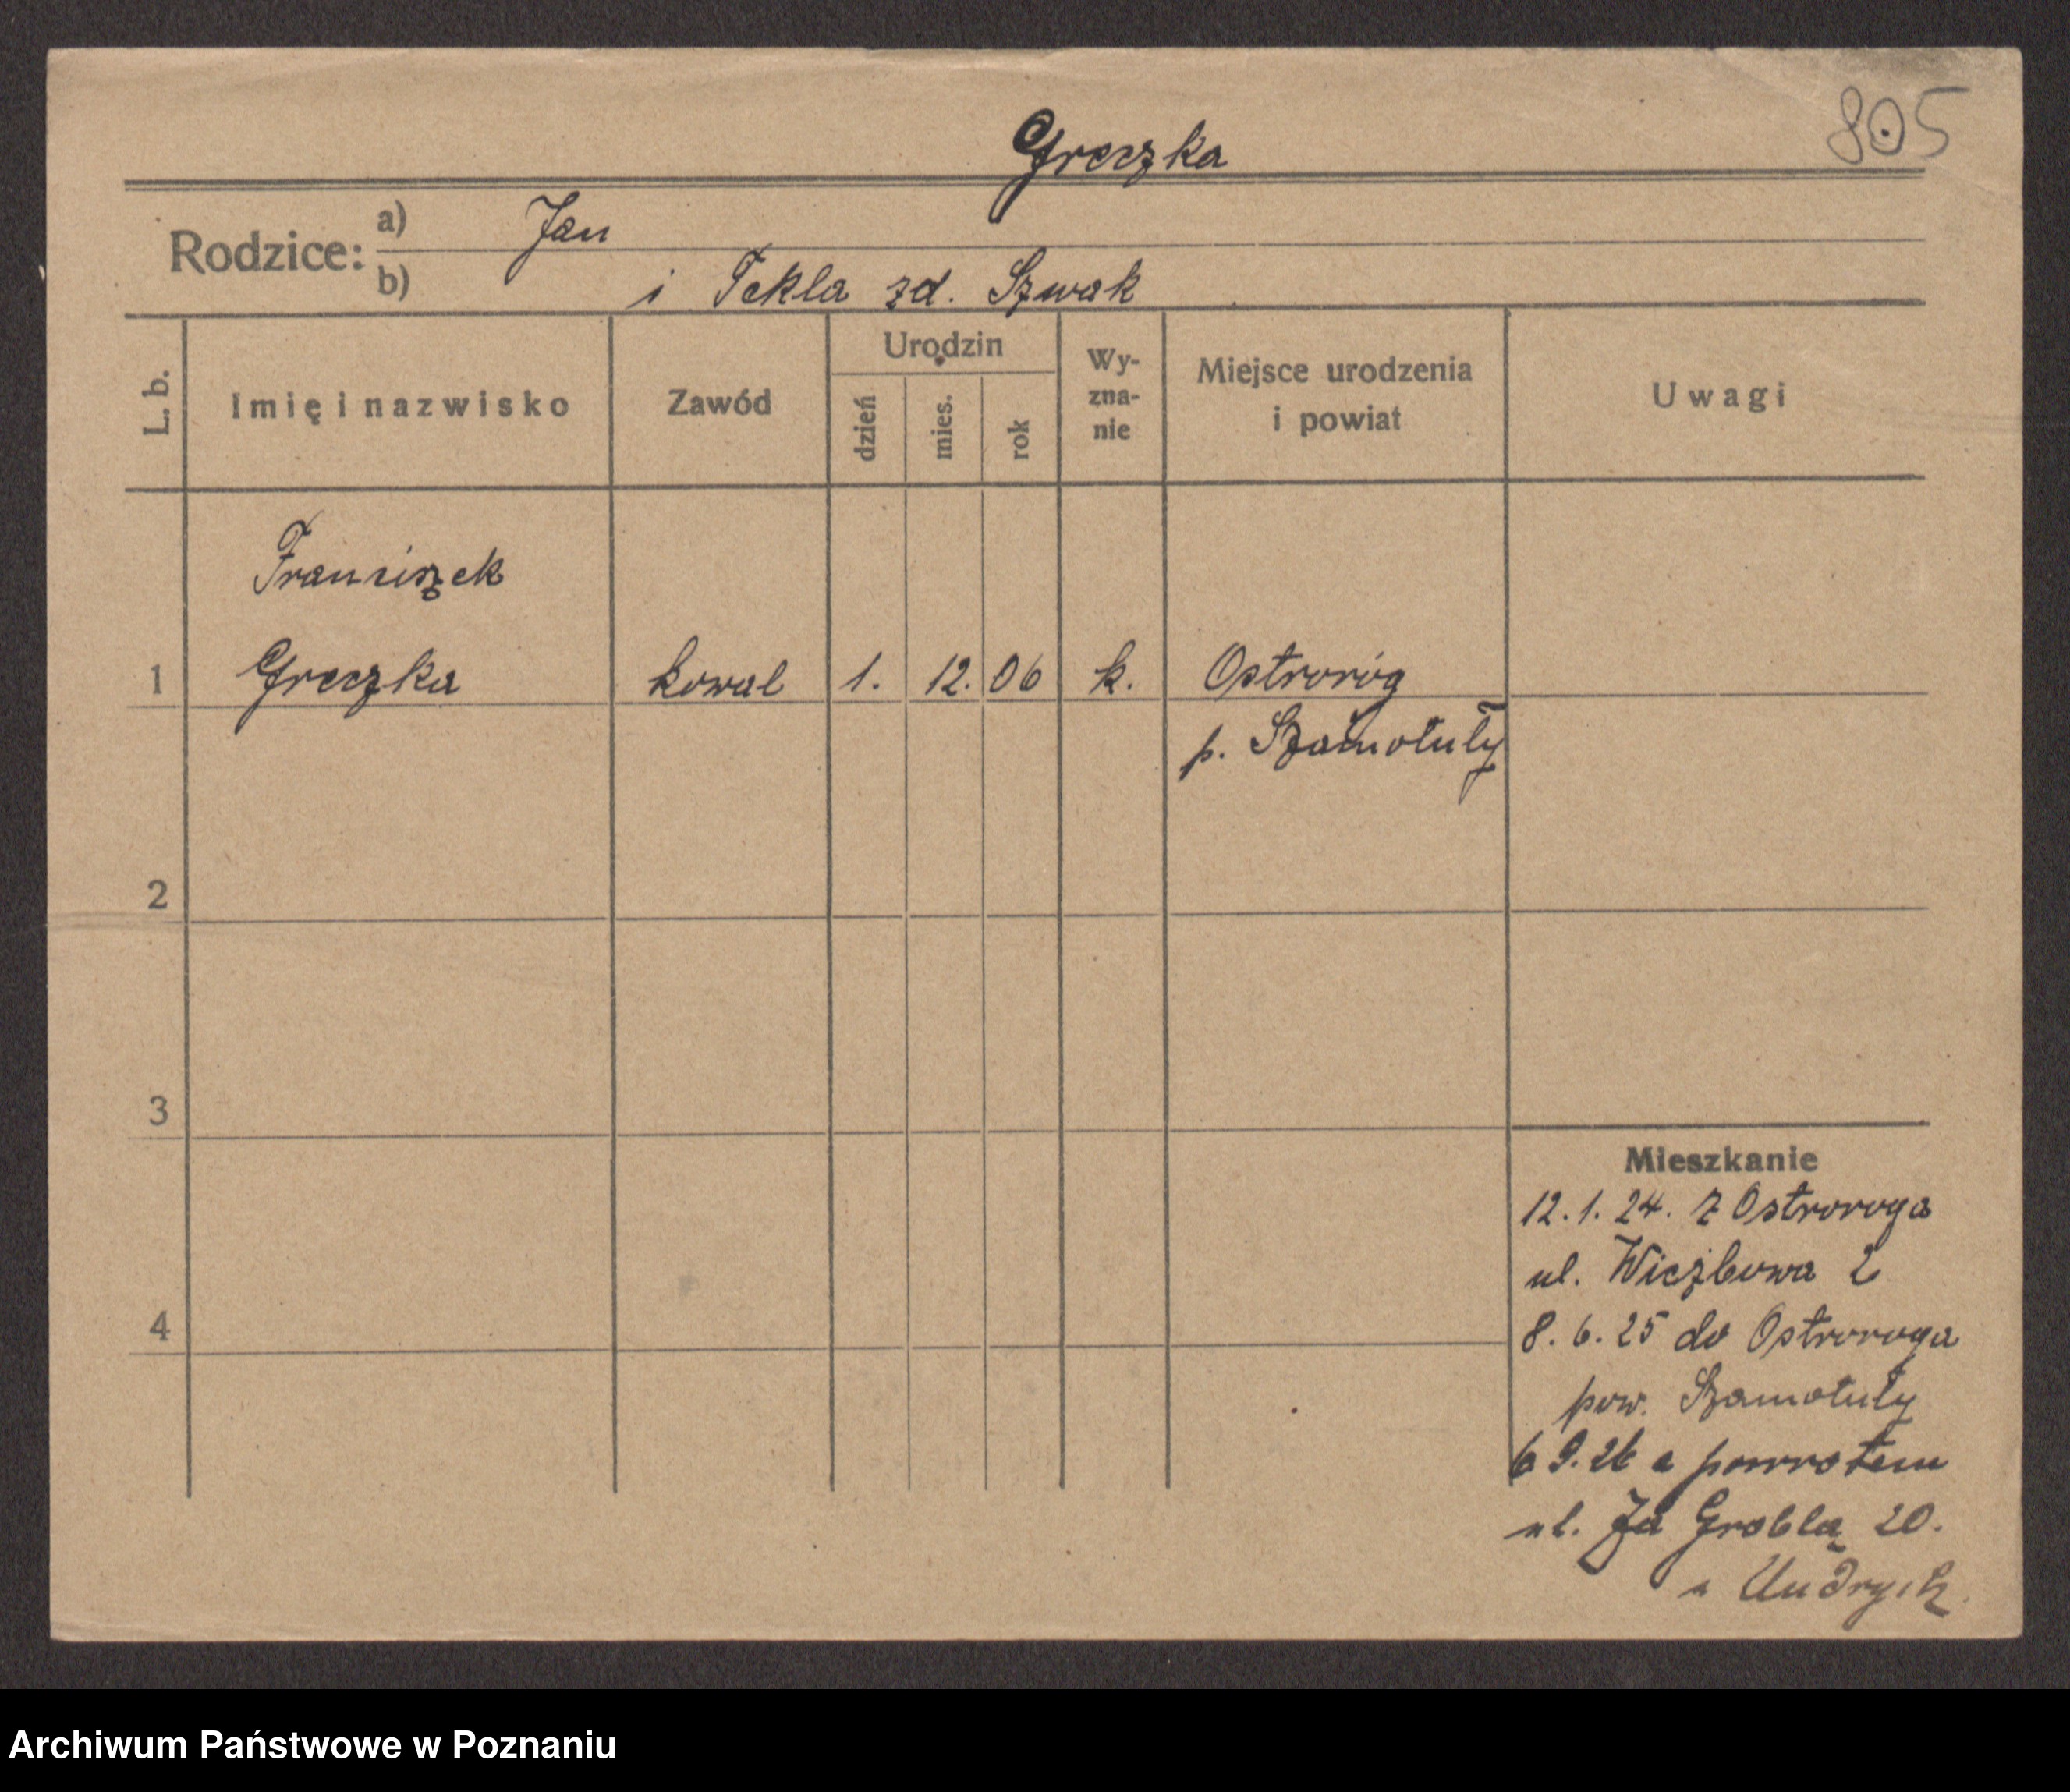 805
Greczka
Rodzice:
a) Jan
b) i Tekla zd. Szwak
L. b.
Imię i nazwisko
Zawód
Urodzin
dzień
mies.
rok
Wy-
zna-
nie
Miejsce urodzenia
i powiat
Uwagi
Franciszek
1 Greczka kowal 1. 12. 06 k. Ostroróg
p. Szamotuły
2
3
4
Mieszkanie
12. 1. 24. z Ostroroga
ul. Wiezbowa 2
8. 6. 25 do Ostroroga
pow. Szamotuły
6 9. 26 powrotem
ul. Za Groblą 20.
Archiwum Państwowe w Poznaniu